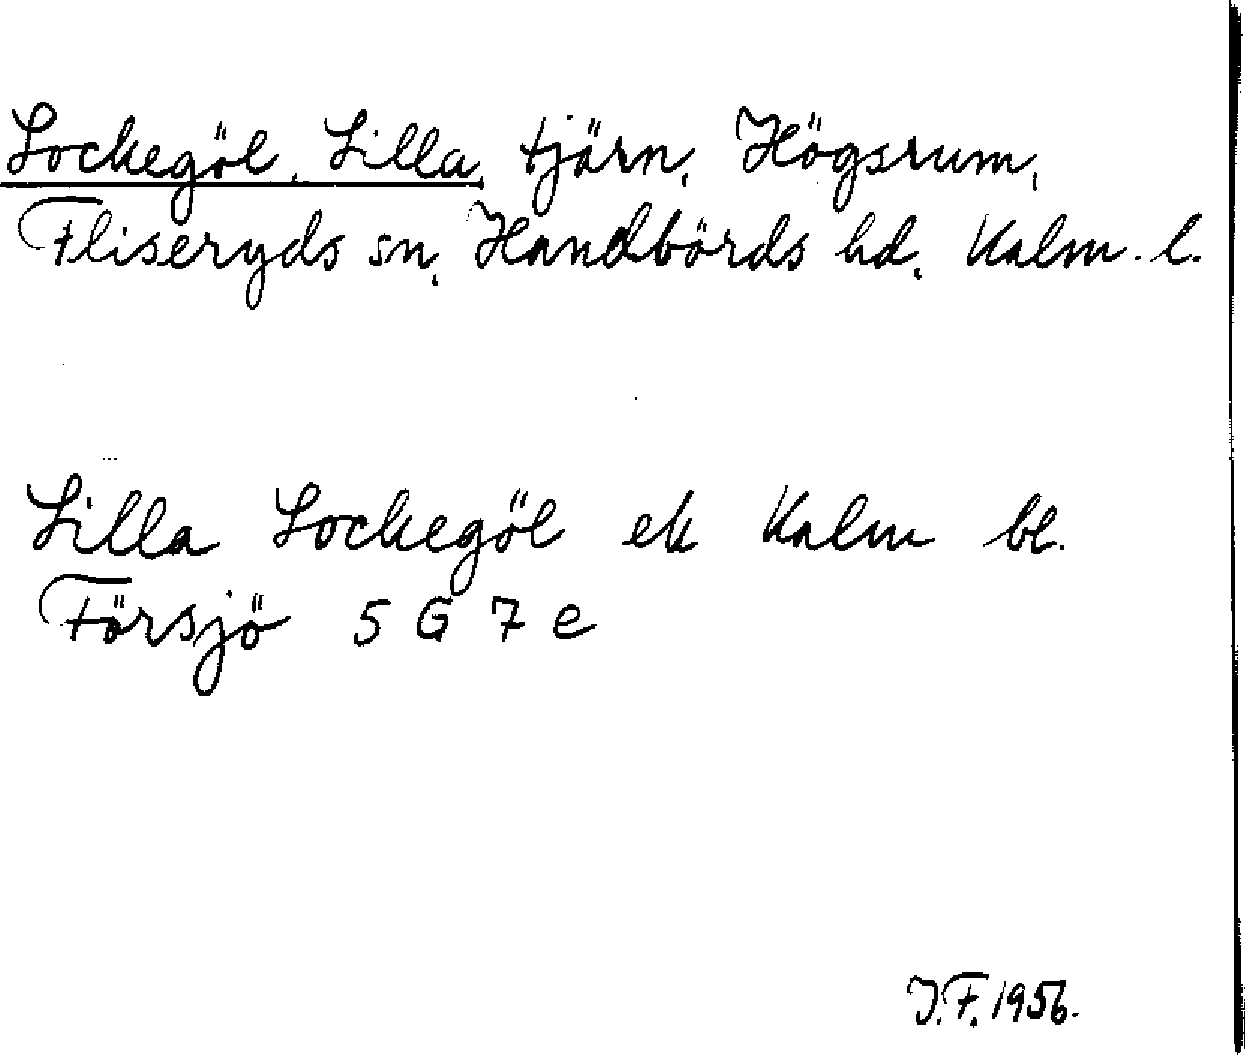 Lockegöl, Lilla, tjärn, Högsrum,
Fliseryds sn, Handbörds hd, Kalm. l.
Lilla Lockegöl ek Kalm bl.
Försjö 5 G 7 e
J.F. 1956.